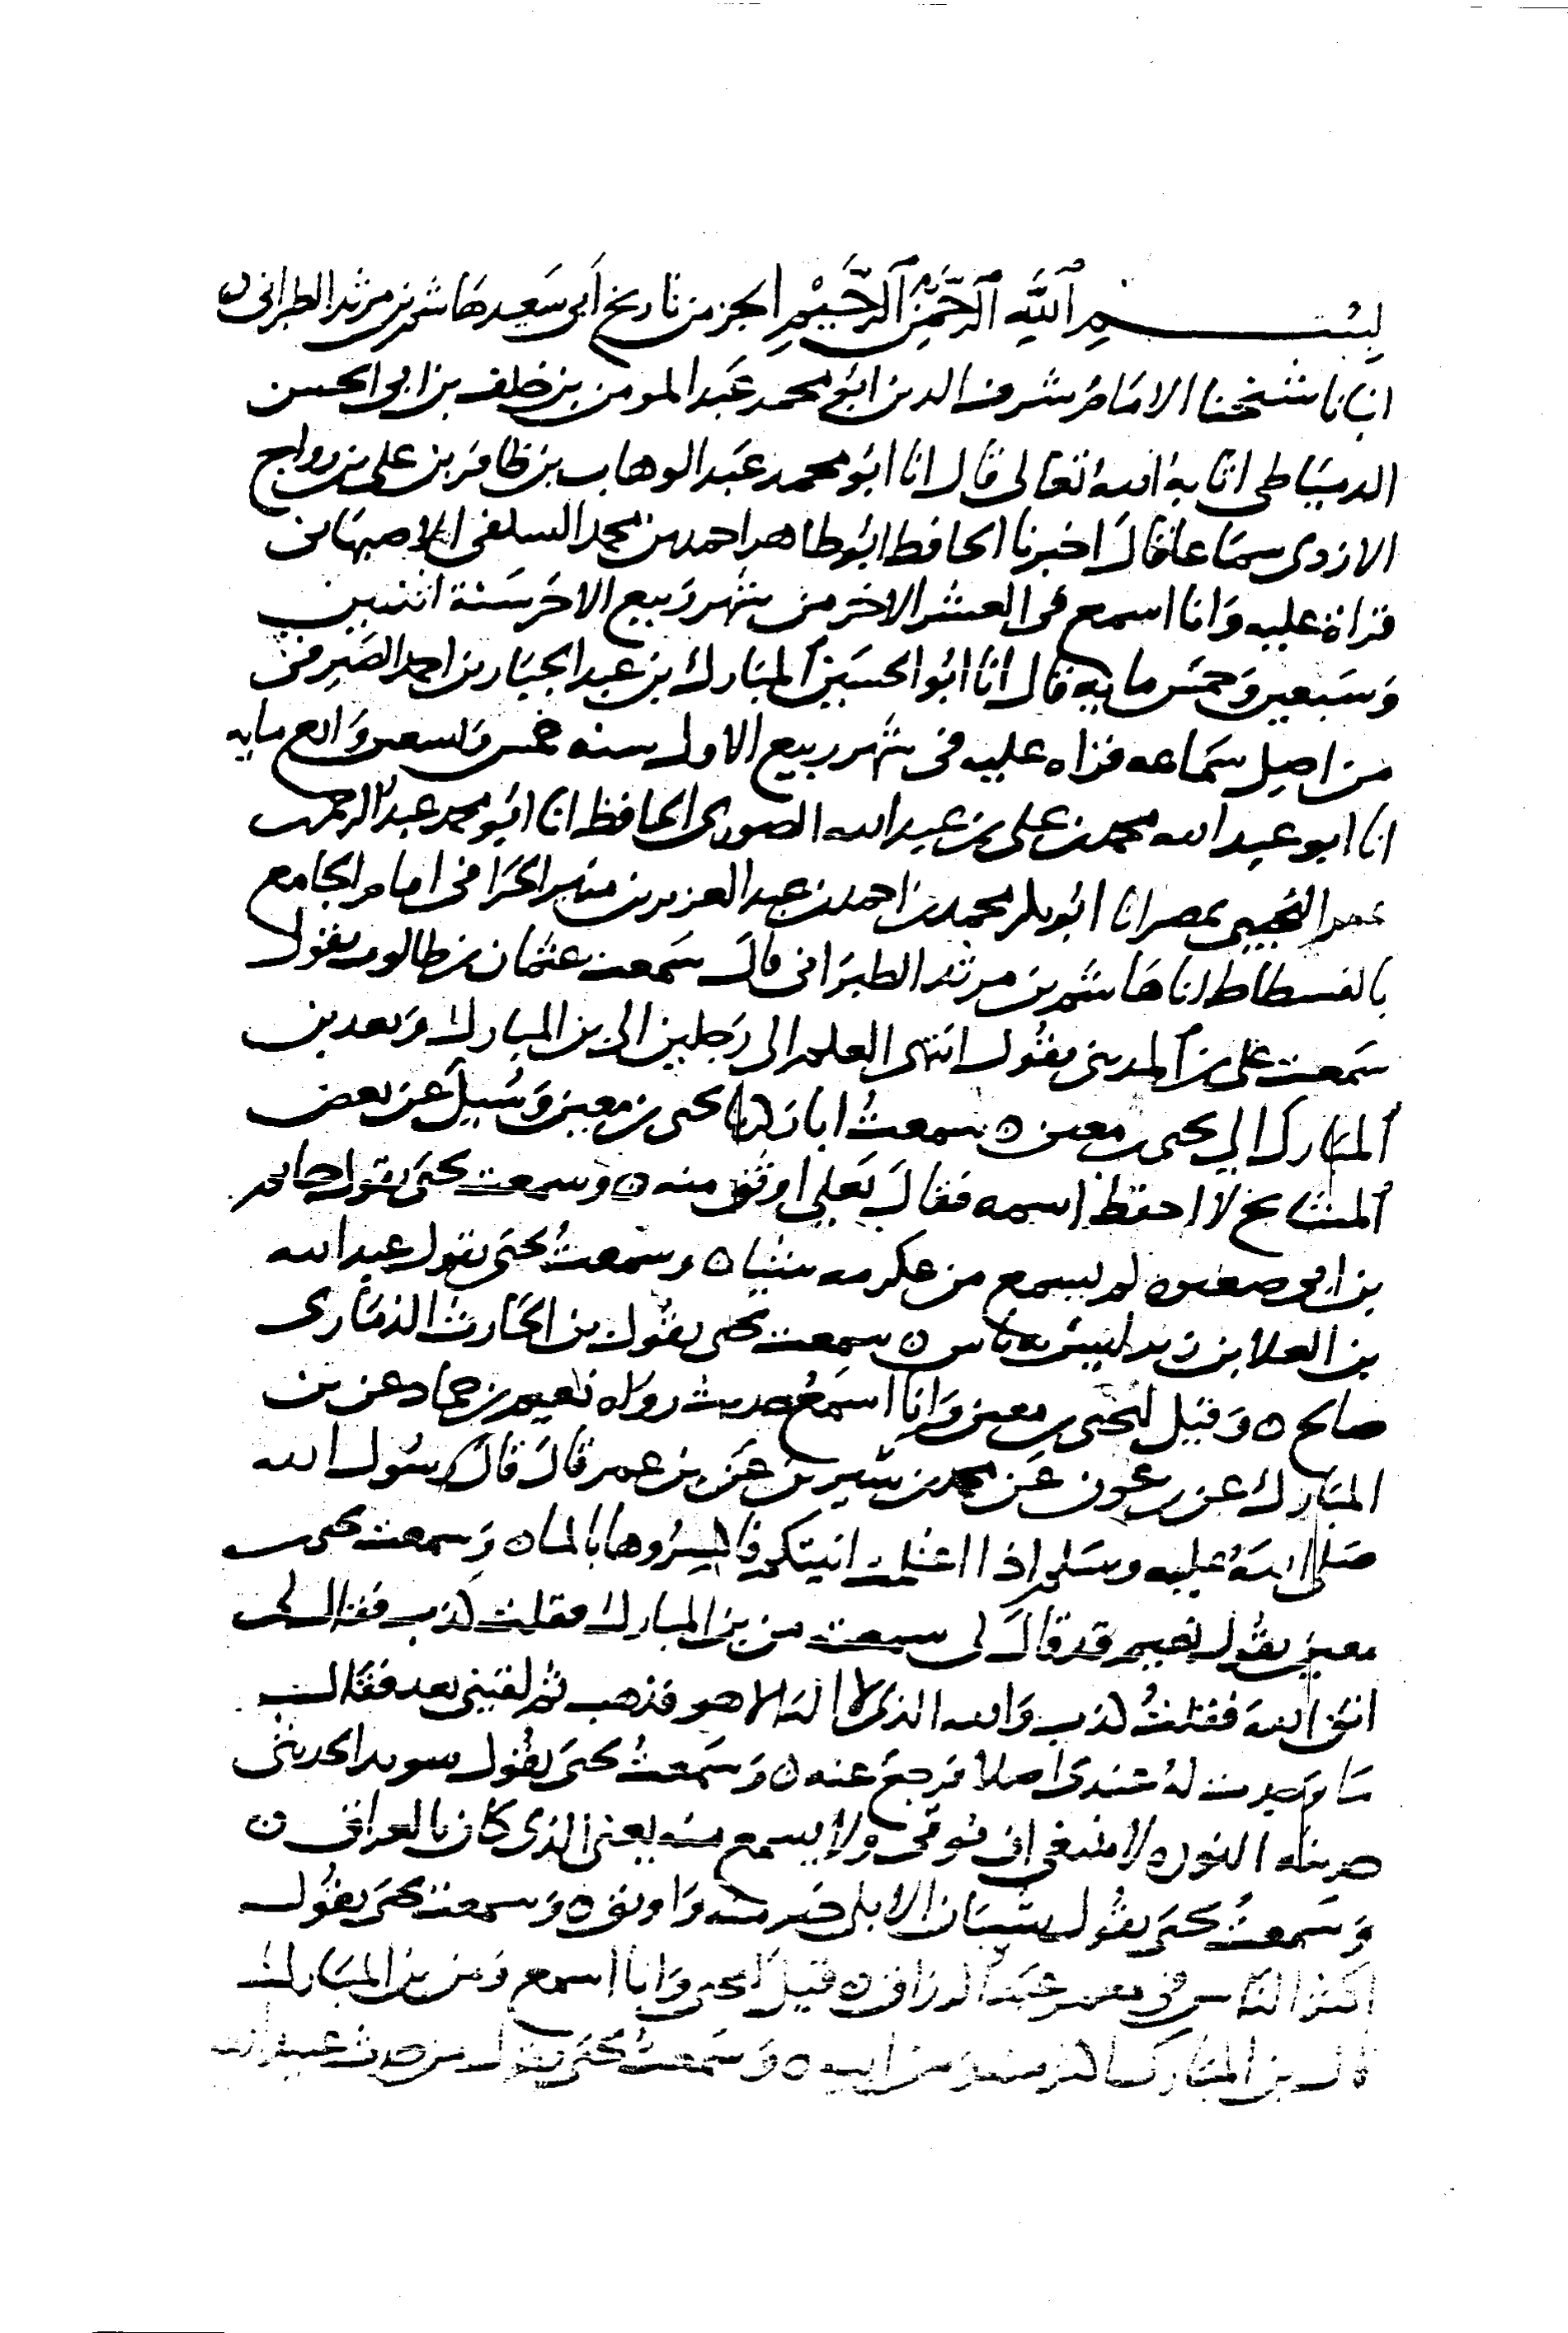 بسم الله الرحمن الرحيم الجز من تاريخ أبي سعيد هاشم بن مرثد الطبراني ن
انبانا شيخنا الامام شرف الدين ابو محمد عبد المومن بن خلف بن ابي الحسن
الدمياطي اثابه الله تعالى قال انا ابو محمد عبد الوهاب بن ظافر بن علي بن رواج
الازدي سماعا قال اخبرنا الحافظ ابو طاهر احمد بن محمد السلفي الاصبهاني
قراة عليه وانا اسمع في العشر الاخر من شهر ربيع الاخر سنة اثنين
وسبعين وخمس مايه قال انا ابو الحسين المبارك بن عبد الجبار بن احمد الصيرفي
من اصل سماعه قراه عليه في شهر ربيع الاول سنه خمس وتسعين واربع مايه
انا ابو عبد الله محمد بن علي بن عبد الله الصوري الحافظ انا ابو محمد عبد الرحمن
بن عمر التجيبي بمصر انا ابو بكر محمد بن احمد بن عبد العزيز بن منير الحراني امام الجامع
بالفسطاط نا هاشم بن مرثد الطبراني قال سمعت عثمان بن طالوت يقول
سمعت علي بن المديني يقول انتهى العلم الى رجلين الى بن المبارك وبعد بن
المبارك الى يحيى بن معين ن سمعت ابا زكريا يحيى بن معين وسيل عن بعض
المشايخ لا احفظ اسمه فقال يعلى اوثق منه ن وسمعت يحيى يقول حاتم
بن ابي صغيره لم يسمع من عكرمه شيا ن وسمعت يحيى يقول عبد الله
بن العلا بن زبر ليس به باس ن سمعت يحيى يقول بن الحارث الذماري
صالح ن وقيل ليحيى بن معين وانا اسمع حديث رواه نعيم بن حماد عن بن
المبارك عن بن عون عن محمد بن سيرين عن بن عمر قال قال رسول الله
صلى الله عليه وسلم اذا اغتلمت انيتكم فاكسروها بالماء ن وسمعت يحيى بن
معين يقول نعيم قد قال لي سمعت من بن المبارك فقلت كذب فقال لي
اتق الله فقلت كذب والله الذي لا اله الا هو فذهب ثم لقيني بعد فقال
ما وجدت له عندي اصلا فرجع عنه ن وسمعت يحيى يقول سويد الحدثي
حدثناه النوره لا ينبغي ان ولا يسمع منه يعني الذي كان بالعراق ن
وسمعت يحيى يقول شيبان الابلي خير منه واوثق ن وسمعت يحيى يقول
اكثر الناس في معمر عبد الرزاق ن قيل ليحيى وانا اسمع ومن بن المبارك
قال بن المبارك اكثر منه ومن ابيه ن وسمعت يحيى يقول من حدث عبيد الله